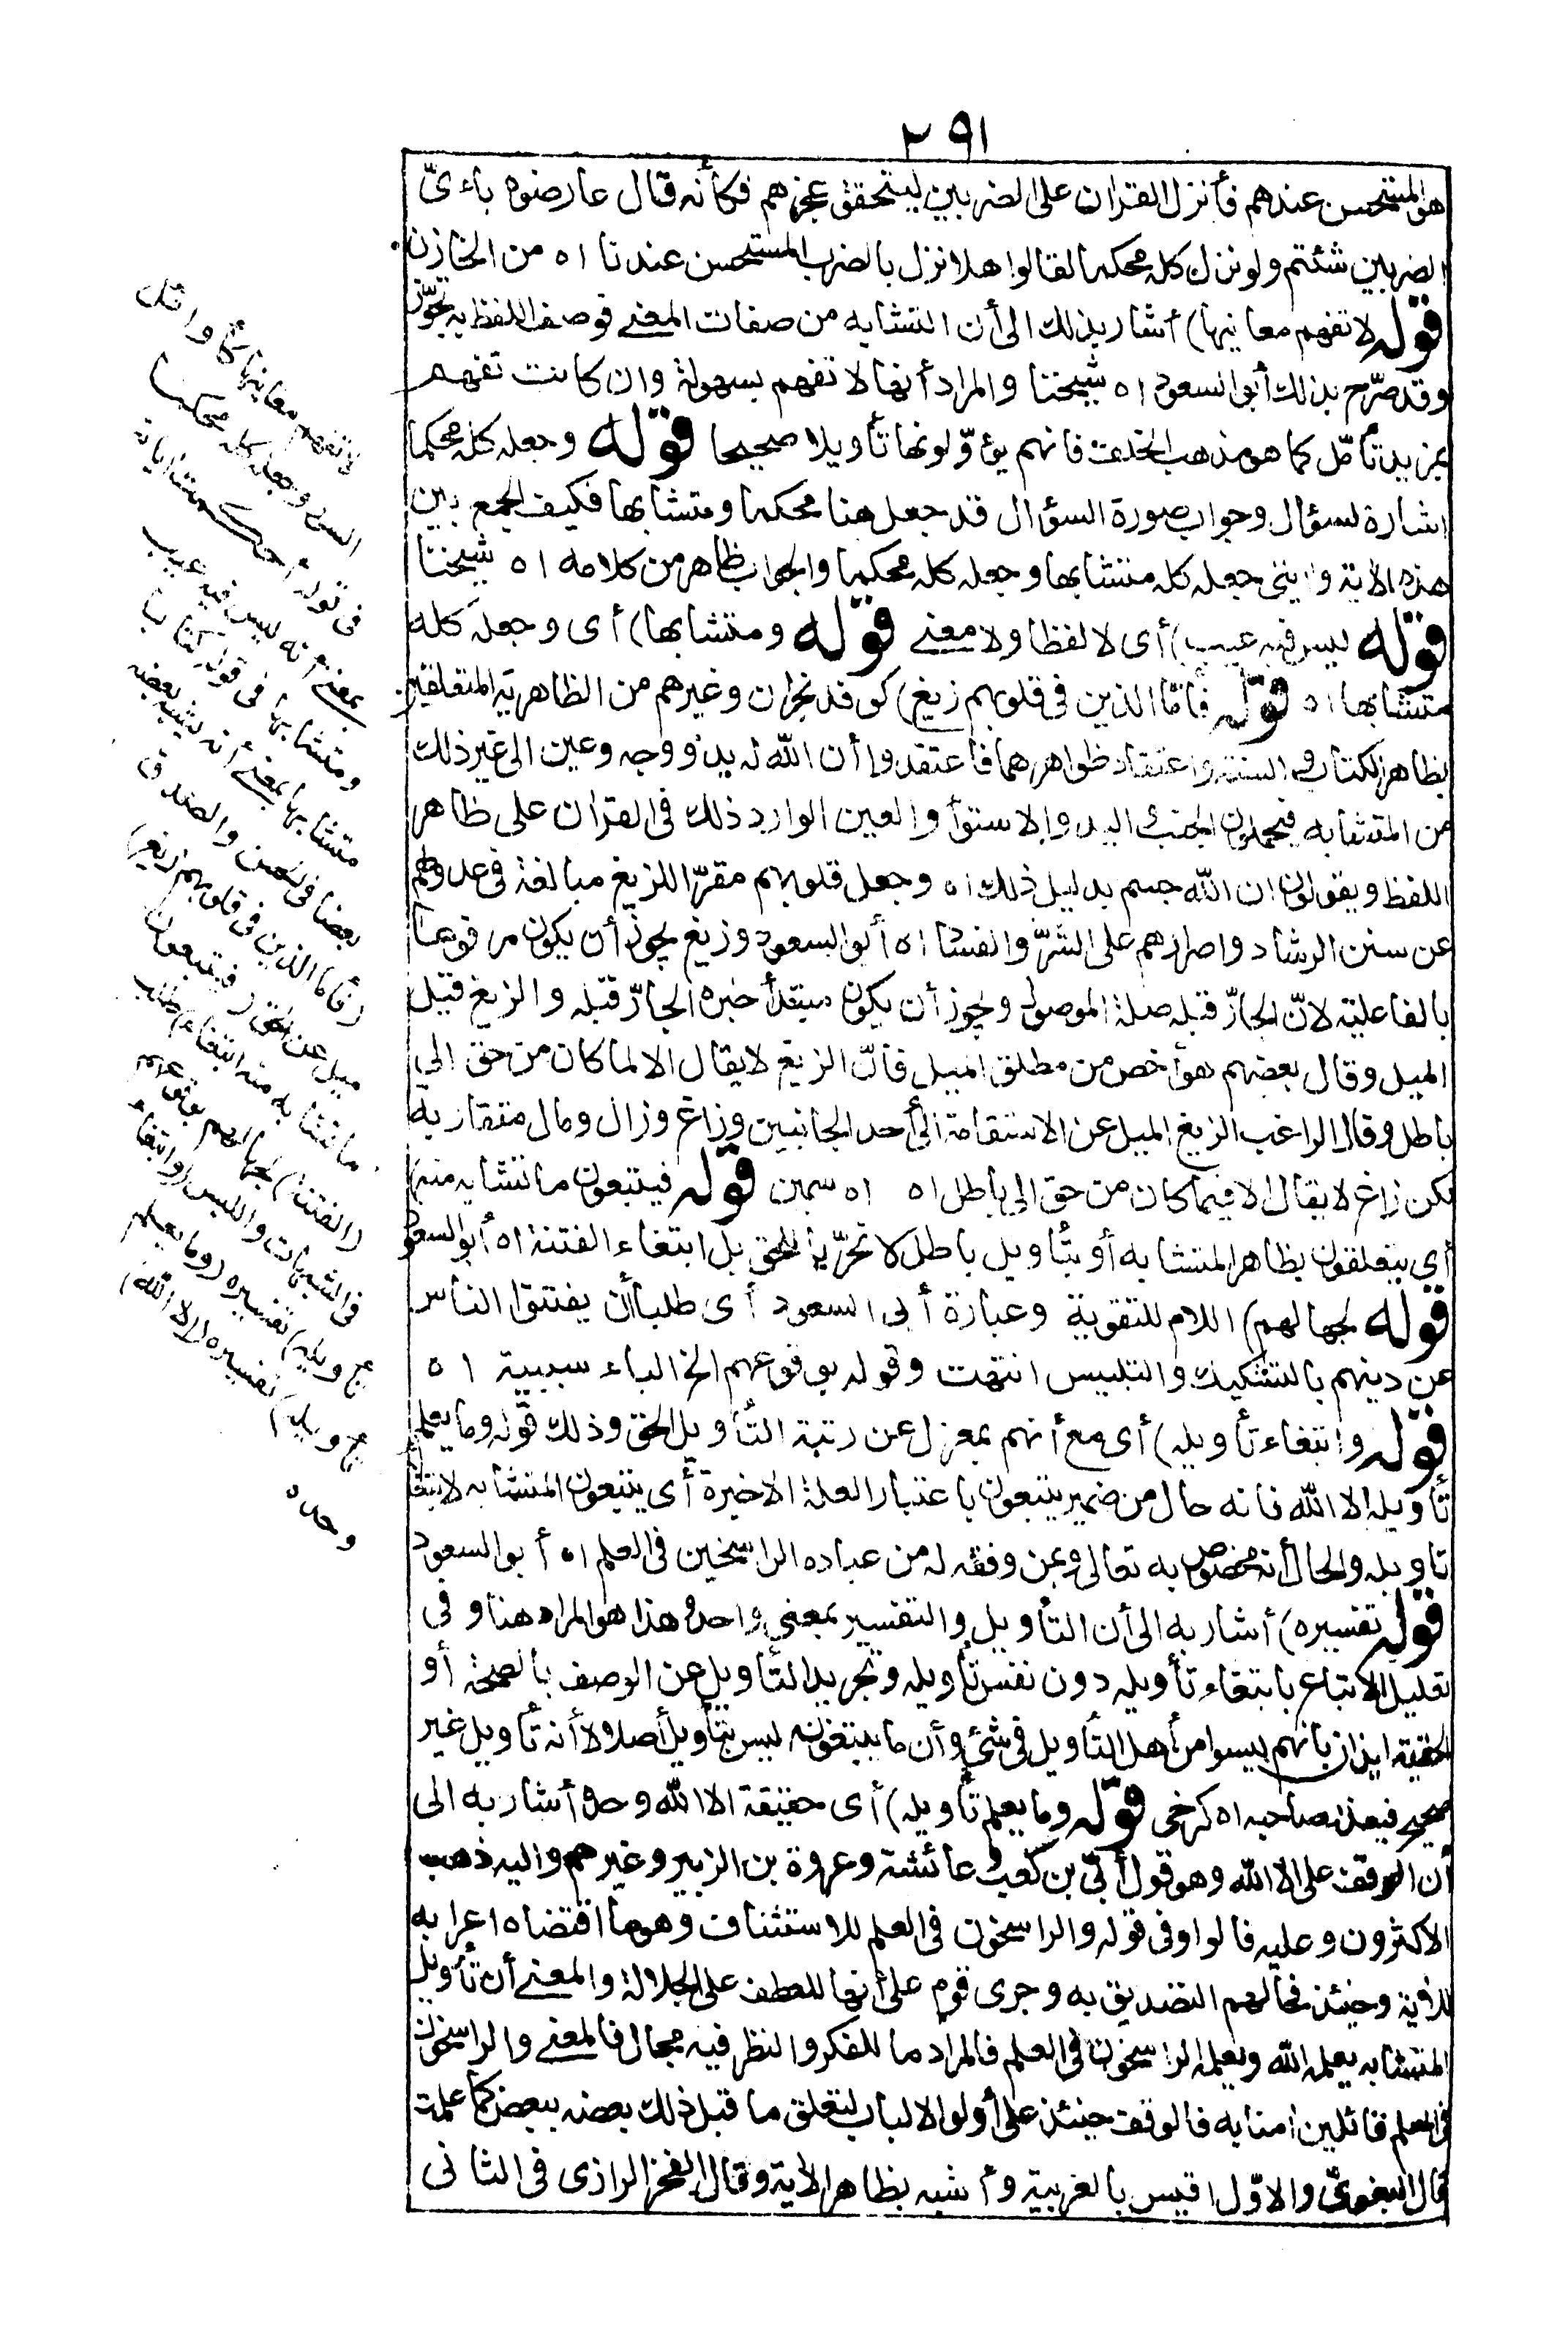 ٢٩١
هو المستحسن عندهم فأنزل القران على الضربين ليتحقق عجزهم فكأنه قال عارضوه باءىّ
الضربين شئتم ولو نزل كله محكما لقالوا هلا نزل بالضرب المستحسن عندنا اه من الخازن
قوله لا تفهم معانيها) أشار بذلك الى أن التشابه من صفات المعنى فوصف اللفظ به تجوّز
وقد صرّح بذلك أبو السعود اه شيخنا والمراد أنها لا تفهم بسهولة وان كانت تفهم
بمزيد تأمّل كما هو مذهب الخلف فانهم يؤوّلونها تأويلا صحيحا قوله وجعله كله محكما
اشارة لسؤال وجواب صورة السؤال قد جعل هنا محكما ومتشابها فكيف الجمع بين
هذه الاية وايتى جعله كله متشابها وجعله كله محكما والجواب ظاهر من كلامه اه شيخنا
قوله ليس فيه عيب) أى لا لفظا ولا معنى قوله ومتشابها) أى وجعله كله
متشابها اه قوله فأمّا الذين فى قلوبهم زيغ) كوفد نجران وغيرهم من الظاهرية المتعلقين
بظاهر الكتاب والسنة واعتقاد ظواهرهما فاعتقدوا أن الله له يد ووجه وعين الى غير ذلك
من المتشابه فيحملون الجنب واليد والاستوأ والعين الوارد ذلك فى القران على ظاهر
اللفظ ويقولون ان الله جسم بدليل ذلك اه وجعل قلوبهم مقرّا للزيغ مبالغة فى عدولهم
عن سنن الرشاد واصرارهم على الشرّ والفساد اه أبو السعود وزيغ يجوز أن يكون مرفوعا
بالفاعلية لانّ الجارّ قبله صلة الموصول ويجوز أن يكون مبتدأ خبره الجارّ قبله والزيغ قيل
الميل وقال بعضهم هو أخص من مطلق الميل فانّ الزيغ لا يقال الا لما كان من حق الى
باطل وقال الراغب الزيغ الميل عن الاستقامة الى أحد الجانبين وزاغ وزال ومال متقاربه
لكن زاغ لا يقال الا فيما كان من حق الى باطل اه اه سمين قوله فيتبعون ما تشابه منه)
أى يتعلقون بظاهر المتشابه أو بتأويل باطل لا تحرّيا للحق بل ابتغاء الفتنة اه أبو السعود
قوله لجهالهم) اللام للتقوية وعبارة أبى السعود أى طلب أن يفتنوا الناس
عن دينهم بالتشكيك والتلبيس انتهت وقوله بوقوعهم الخ الباء سببية اه
قوله وابتغاء تأويله) أى مع أنهم بمعزل عن رتبة التأويل الحق وذلك قوله وما يعلم
تأويله الا الله فانه حال من ضمير يتبعون باعتبار العلة الاخيرة أى يتبعون المتشابه لابتغاء
تاويله والحال أنه مخصوص به تعالى وبمن وفقه له من عباده الراسخين فى العلم اه أبو السعود
قوله تفسيره) أشار به الى أن التأويل والتفسير بمعنى واحد وهذا هو المراد هنا وفى
تعليل الاتباع بابتغاء تأويله دون نفس تأويله وتجريد التأويل عن الوصف بالصحة أو
الحقية ايذان بانهم ليسوا من أهل التأويل فى شئ وأن ما يبتغونه ليس بتأويل أصلا ولا أنه تأويل غير
صحيح فيعذر صاحبه اه كرخى قوله وما يعلم تأويله) أى حقيقة الا الله وحده أشار به الى
أن الوقف على الا الله وهو قول أبىّ بن كعب وعائشة وعروة بن الزبير وغيرهم واليه ذهب
الاكثرون وعليه فالواو فى قوله والراسخون فى العلم للاستئناف وهو ما اقتضاه اعرابه
للاية وحينئذ فمالهم التصديق به وجرى قوم على أنها للعطف على الجلالة والمعنى أن تأويل
المتشابه يعلمه الله ويعلمه الراسخون فى العلم فالمراد ما للفكر والنظر فيه مجال فالمعنى والراسخون
فى العلم قائلين امنا به فالوقف حينئذ على أولوا الالباب لتعلق ما قبل ذلك بعضه ببعض كما علمت
قال البغوىّ والاوّل اقيس بالعربية وأشبه بظاهر الاية وقال الفخر الرازى فى الثانى
لا تفهم معانيها كأوائل
السور وجعله كله محكما
فى قوله أحكمت اياته
بمعنى أنه ليس فيه عيب
ومتشابها فى قوله كتابا
متشابها بمعنى أنه يشبه بعضه
بعضا فى الحسن والصدق
(فأما الذين فى قلوبهم زيغ)
ميل عن الحق (فيتبعون
ما تشابه منه ابتغاء) طلب
(الفتنة) لجهالهم بوقوعهم
فى الشبهات واللبس (وابتغاء
تأويله) تفسيره (وما يعلم
تأويله) تفسيره (الا الله)
وحده